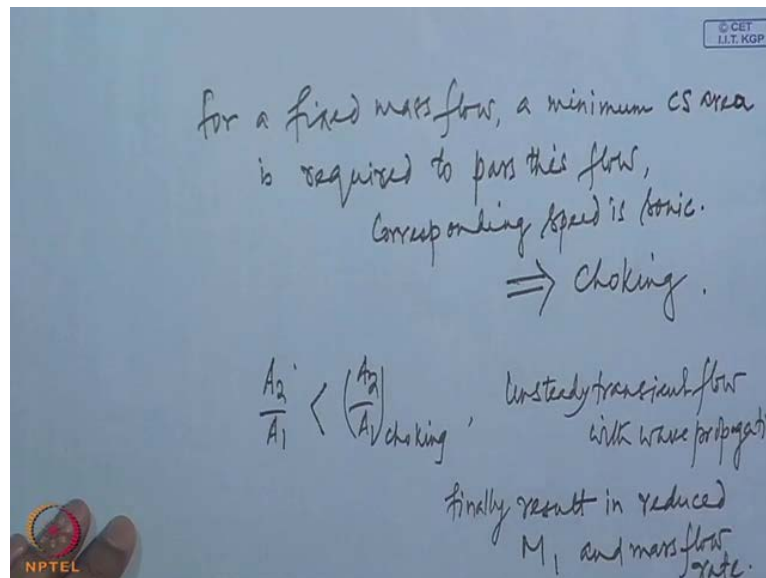 © CET
I.I.T. KGP
for a fixed mass flow, a minimum CS area
is required to pass this flow,
Corresponding speed is sonic.
⇒ Choking.
A₂/A₁ < (A₂/A₁)choking, Unsteady transient flow
with wave propagati
finally result in reduced
M₁ and mass flow
rate.
NPTEL